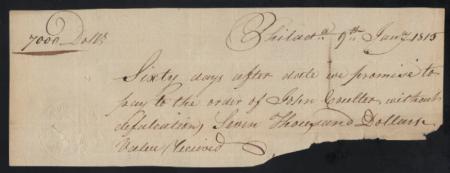 7000 Dolls
Philada 9th Jany 1815
Sixty days after date we promise to
pay to the order of John Coulter, without
defalcation, Seven Thousand Dollars
Value Received